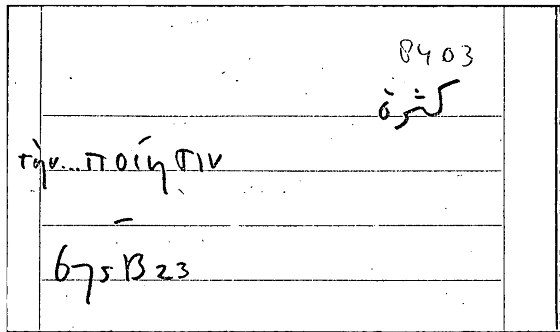 8403
كثرة
τὴν...ποίησιν
675 B 23